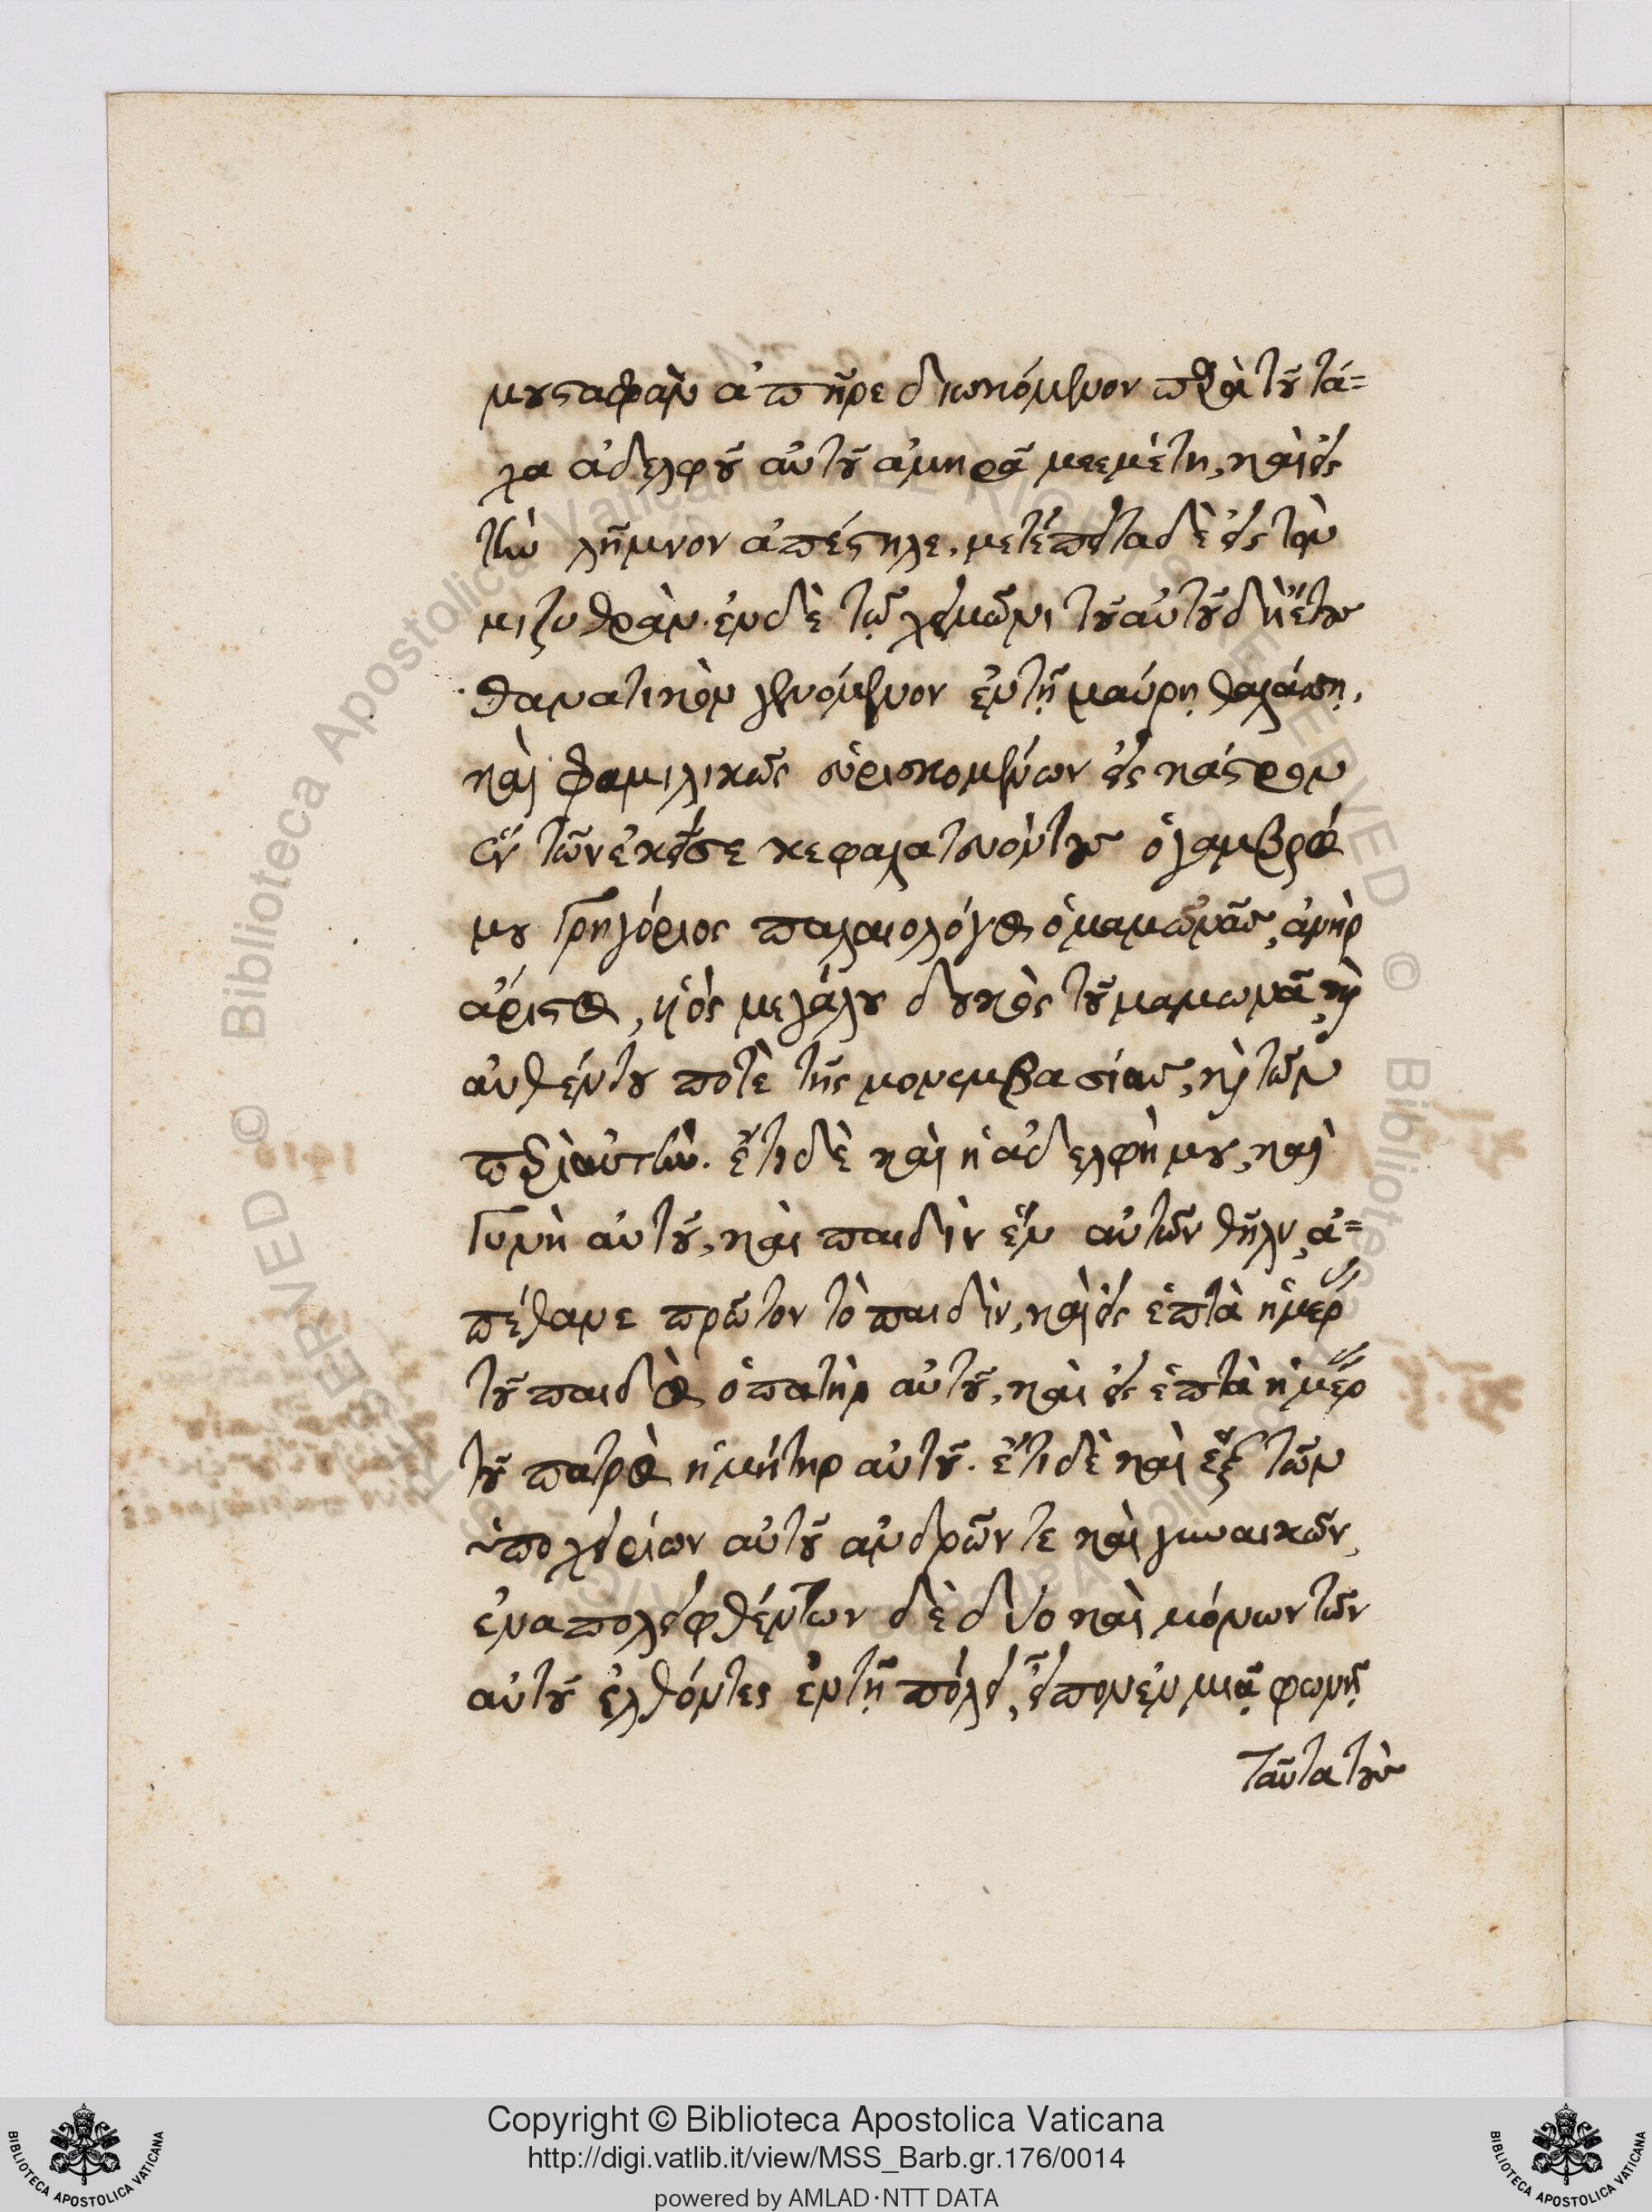 μουσταφᾶν ἀπῆρε διωκόμενον παρὰ τοῦ τά=
χα ἀδελφοῦ αὐτοῦ ἀμηρᾶ μεεμέτη, καὶ εἰς
τὴν λῆμνον ἀπέστηλε. μετέπειτα δὲ εἰς τὸν
μιζυθρὰν. ἐν δὲ τῷ χειμῶνι τοῦ αὐτοῦ δὴ ἔτους
θανατικὸν γενόμενον ἐν τῇ μαύρῃ θαλάσσῃ,
καὶ φαμιλικῶς εὑρισκομένων εἰς κάστρον
ἓν τῶν ἐκεῖσε κεφαλατευόντων ὁ γαμβρός
μου Γρηγόριος παλαιολόγος ὁ μαμωνᾶς, ἀνὴρ
ἄριστος, ὑιὸς μεγάλου δουκὸς τοῦ μαμωνᾶ, καὶ
αὐθέντου ποτὲ τῆς μονεμβασίας, καὶ τῶν
περὶ αὐτὴν. ἔτι δὲ καὶ ἡ ἀδελφὴ μου, καὶ
Γυνὴ αὐτοῦ, καὶ παιδὶν ἓν αὐτῶν θῆλυ, ἀ=
πέθανε πρῶτον τὸ παιδὶν, καὶ εἰς ἑπτὰ ἡμέρας
τοῦ παιδὸς ὁ πατὴρ αὐτοῦ, καὶ εἰς ἑπτὰ ἡμέρας
τοῦ πατρὸς ἡ μήτηρ αὐτοῦ. ἔτι δὲ καὶ ἓξ τῶν
ὑποχειρίων αὐτοῦ ἀνδρῶν τε καὶ γυναικῶν,
ἐναπολειφθέντων δὲ δύο καὶ μόνων τῶν
αὐτοῦ ἐλθόντες ἐν τῇ πόλει, εἶπον ἐν μιᾷ φωνῇ
ταῦτα τοὺς
Copyright © Biblioteca Apostolica Vaticana
http://digi.vatlib.it/view/MSS_Barb.gr.176/0014
powered by AMLAD·NTT DATA